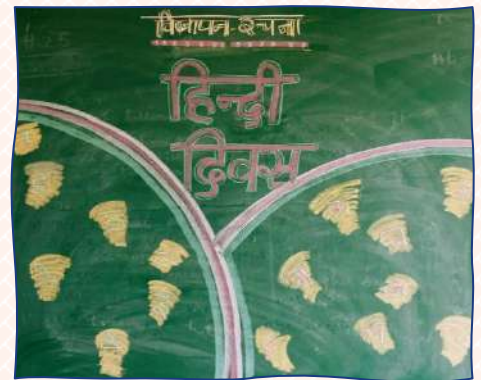 विज्ञापन-रचना
हिन्दी
दिवस